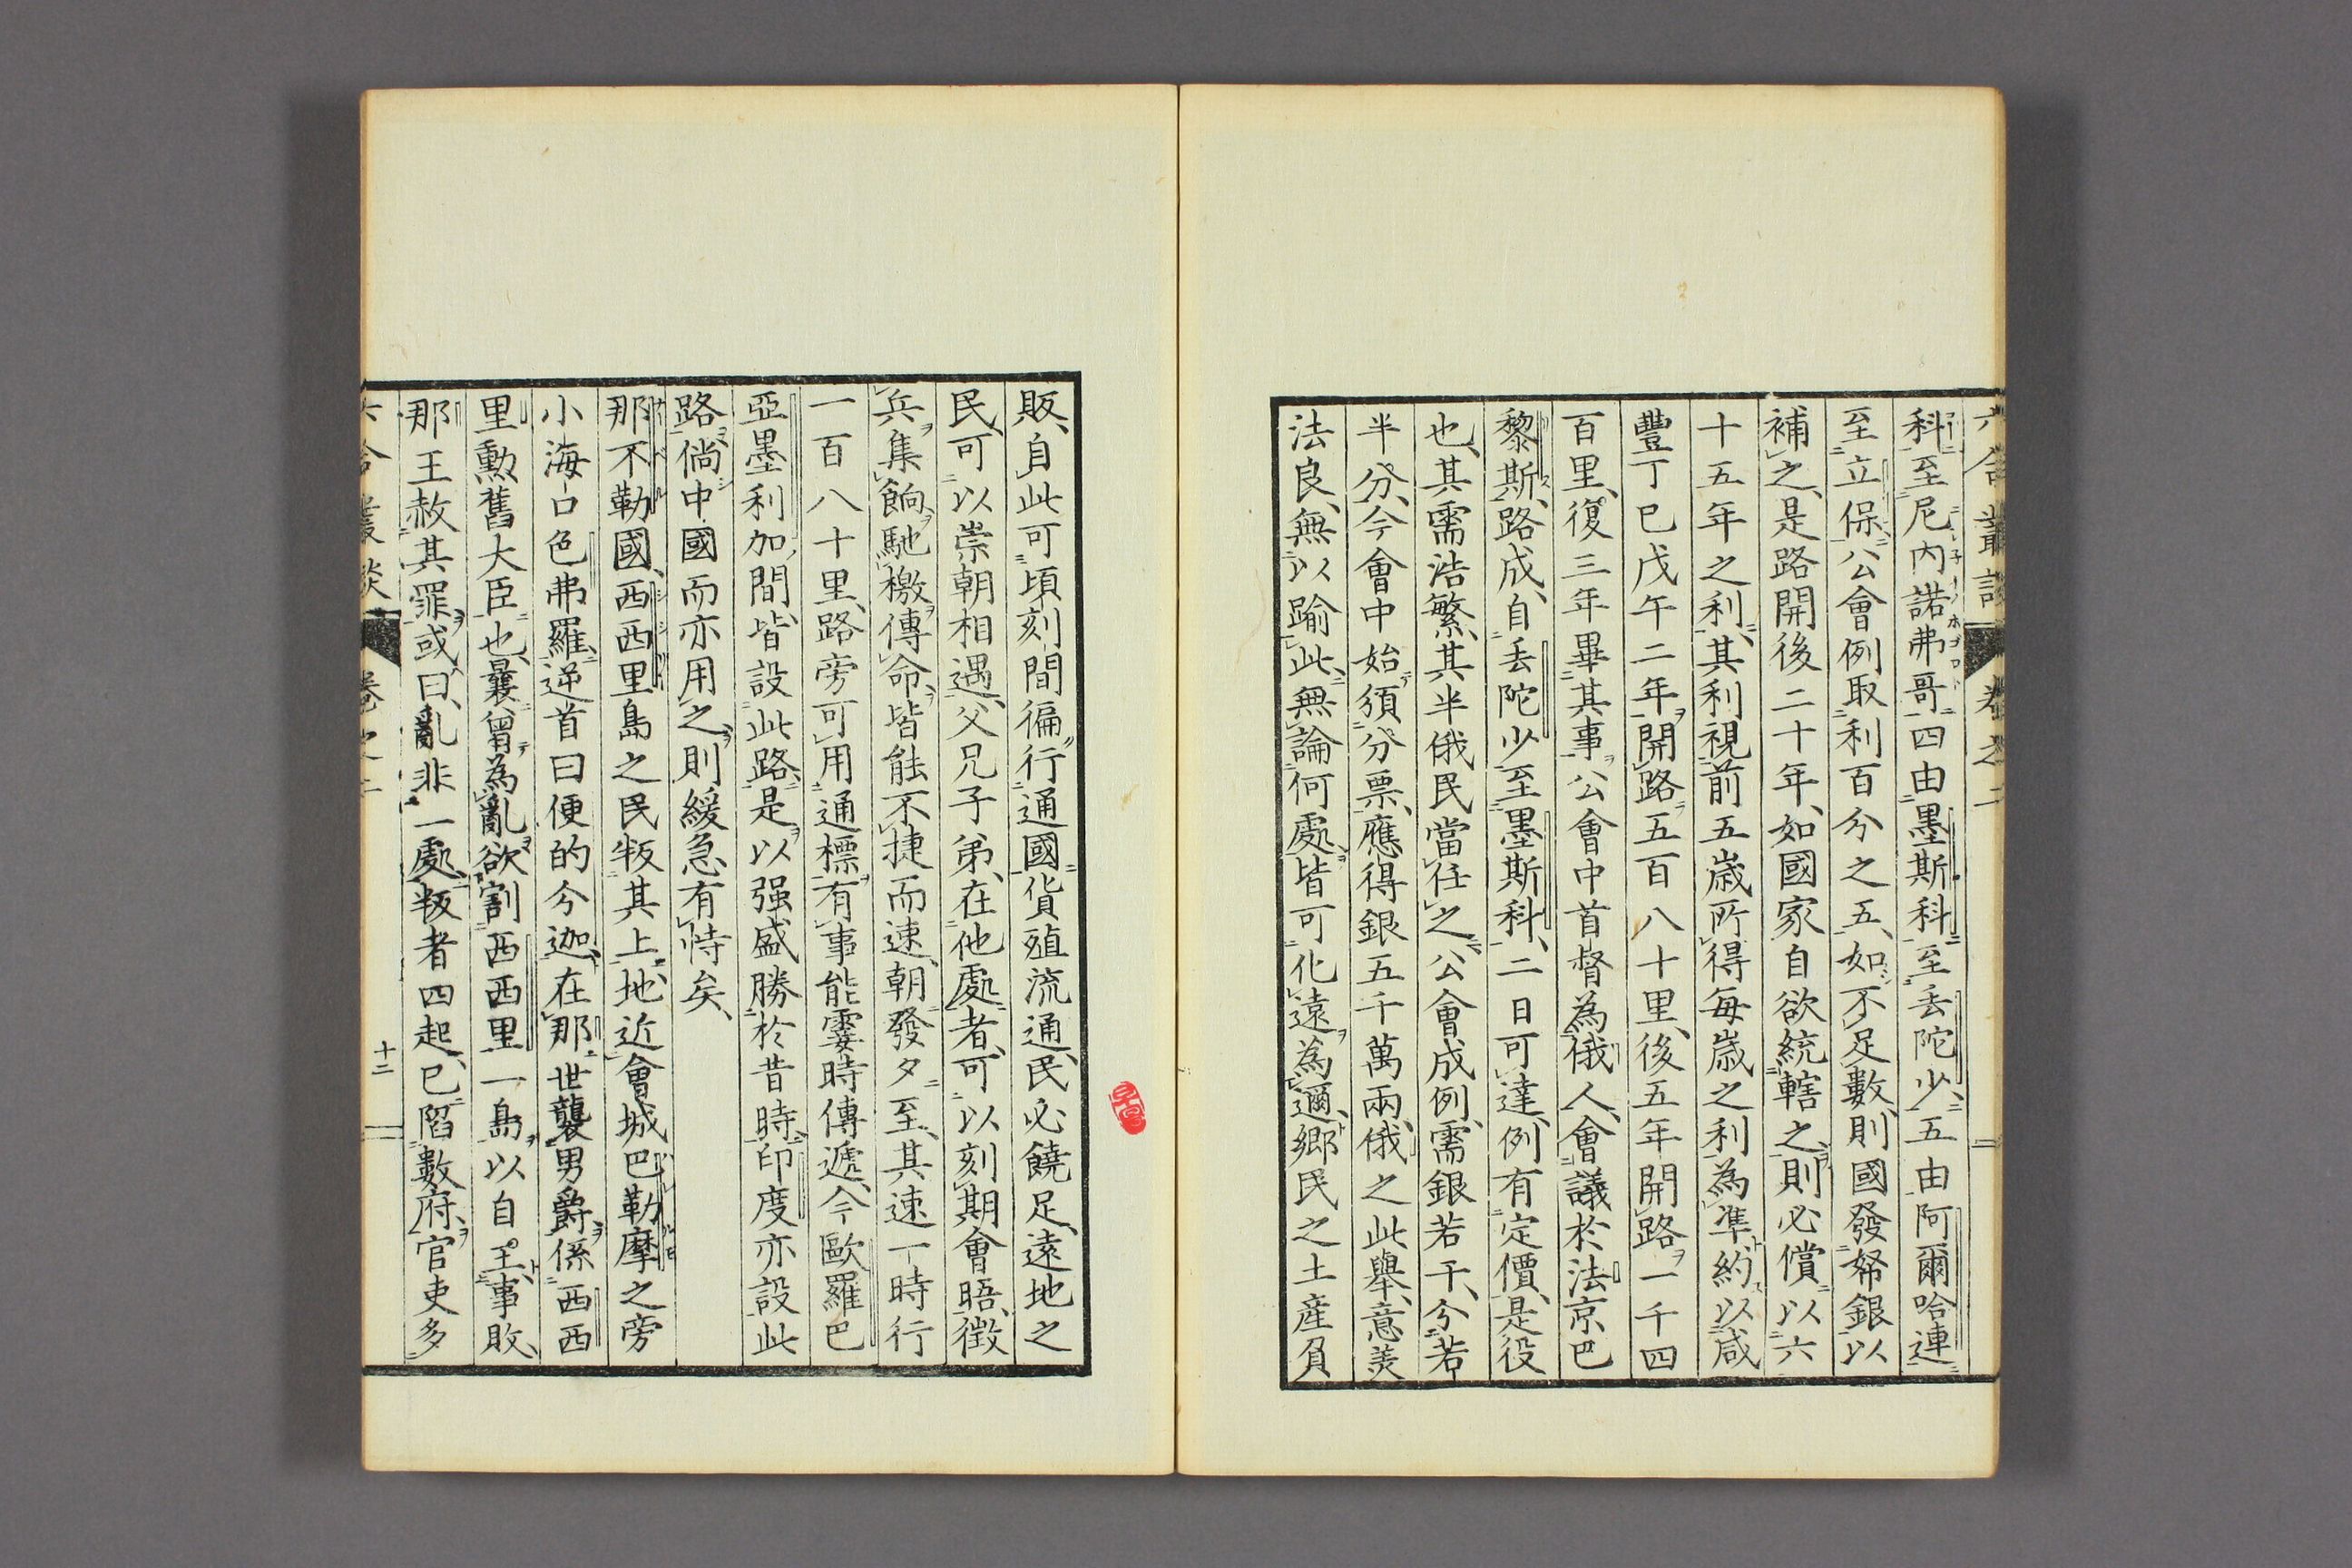 六合叢談 卷之二
科至尼內諾弗哥四由墨斯科至丢陀少五由阿爾哈連
至立保公會例取利百分之五如不足數則國發帑銀以
補之是路開後二十年如國家自欲統轄之則必償以六
十五年之利其利視前五歲所得每歲之利為準約以咸
豐丁巳戊午二年開路五百八十里後五年開路一千四
百里復三年畢其事公會中首督為俄人會議於法京巴
黎斯路成自丢陀少至墨斯科二日可達例有定價是役
也其需浩繁其半俄民當任之公會成例需銀若干分若
半分今會中始須分票應得銀五千萬兩俄之此舉意美
法良無以踰此無論何處皆可化遠為邇鄉民之土產負
販自此可頃刻間徧行通國貨殖流通民必饒足遠地之
民可以崇朝相遇父兄子弟在他處者可以刻期會晤徵
兵集餉馳檄傳命皆能不捷而速朝發夕至其速一時行
一百八十里路旁可用通標有事能霎時傳遞今歐羅巴
亞墨利加間皆設此路是以强盛勝於昔時印度亦設此
路倘中國而亦用之則緩急有恃矣
那不勒國西西里島之民叛其上地近會城巴勒摩之旁
小海口色弗羅逆首曰便的今迦在那世襲男爵係西西
里勳舊大臣也曩曾為亂欲割西西里一島以自王事敗
那王赦其罪或曰亂非一處叛者四起已陷數府官吏多
六合叢談 卷之二 十二